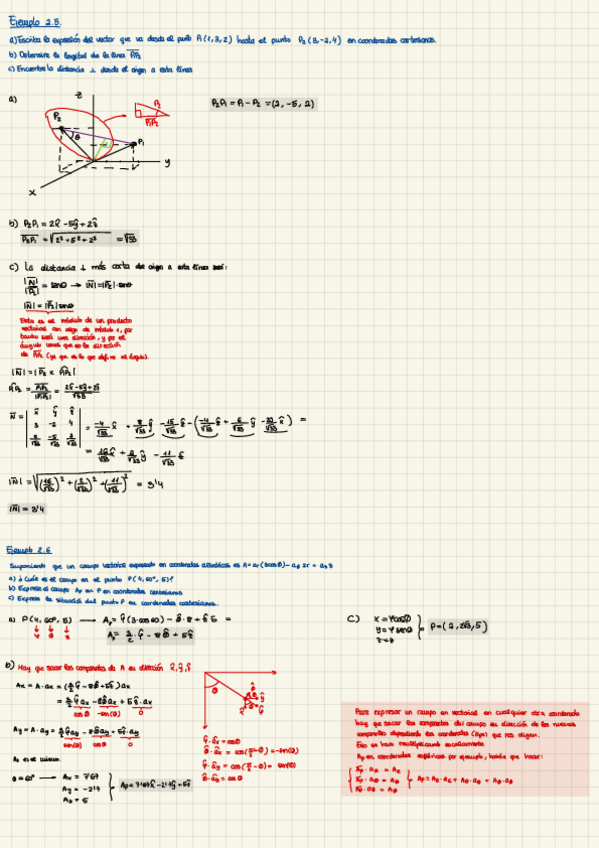 Ejemplo 2.5.
a) Escriba la expresión del vector que va desde el punto P₁(1,3,2) hasta el punto P₂(3,-2,4) en coordenadas cartesianas.
b) Determine la longitud de la línea P₁P₂
c) Encuentre la distancia ⊥ desde el origen a esta línea
a)
z
P₂
θ
P₁
y
x
P₂
P₁P₂
P₂P₁ = P₁ - P₂ = (2, -5, 2)
b) P₂P₁ = 2x̂ - 5ŷ + 2ẑ
P₂P₁ = √(2² + 5² + 2²) = √33
c) la distancia ⊥ más corta de origen a esta línea será:
|N|/|P₂| = senθ → |N| = |P₂|·senθ
|N| = |P₂| senθ
Esto es el módulo de un producto
vectorial con algo de módulo 1, por
tanto será una dirección, y por el
ángulo vemos que es la dirección
de P₁P₂ (ya que es lo que define el ángulo).
|N| = |P₂ × P₁P₂|
P₁P₂ = P₁P₂/|P₁P₂| = (2x̂ - 5ŷ + 2ẑ)/√33
N = | x̂ ŷ ẑ |
3 -2 4
2/√33 -5/√33 2/√33
= -4/√33 x̂ + 8/√33 ŷ - 15/√33 ẑ - (-4/√33 ẑ + 6/√33 ŷ - 20/√33 x̂) =
= 16/√33 x̂ + 2/√33 ŷ - 11/√33 ẑ
|N| = √((16/√33)² + (2/√33)² + (11/√33)²) = 3'4
|N| = 3'4
Ejemplo 2.6
Suponiendo que un campo vectorial expresado en coordenadas cilíndricas es A = ar(3cosθ) - aθ 2r + az z
a) ¿Cuál es el campo en el punto P(4, 60°, 5)?
b) Exprese el campo Ap en P en coordenadas cartesianas
c) Exprese la situación del punto P en coordenadas cartesianas.
a) P(4, 60°, 5) → Ap = r̂(3·cos60) - θ̂·8 + ẑ·5 =
r θ z
Ap = 3/2 r̂ - 8θ̂ + 5ẑ
c) x = rcosθ
y = rsenθ
z = z
P = (2, 2√3, 5)
b) Hay que sacar las componentes de A en dirección x̂, ŷ, ẑ
Ax = A·ax = (3/2 r̂ - 8θ̂ + 5ẑ) ax
= 3/2 r̂·ax - 8θ̂·ax + 5ẑ·ax
cosθ -sen(θ) 0
Ay = A·ay = 3/2 r̂·ay - 8θ̂·ay + 5ẑ·ay
sen(θ) cosθ 0
θ = 60° → Ax = 7'67
Ay = -2'7
Az = 5
r̂·ax = cosθ
θ̂·ax = cos(π/2+θ) = -sen(θ)
r̂·ay = cos(π/2-θ) = sen(θ)
θ̂·ay = cosθ
Para expresar un campo en vectorial en cualquier otra coordenada
hay que sacar las componentes del campo en dirección de las nuevas
Eso se hace multiplicando escalarmente